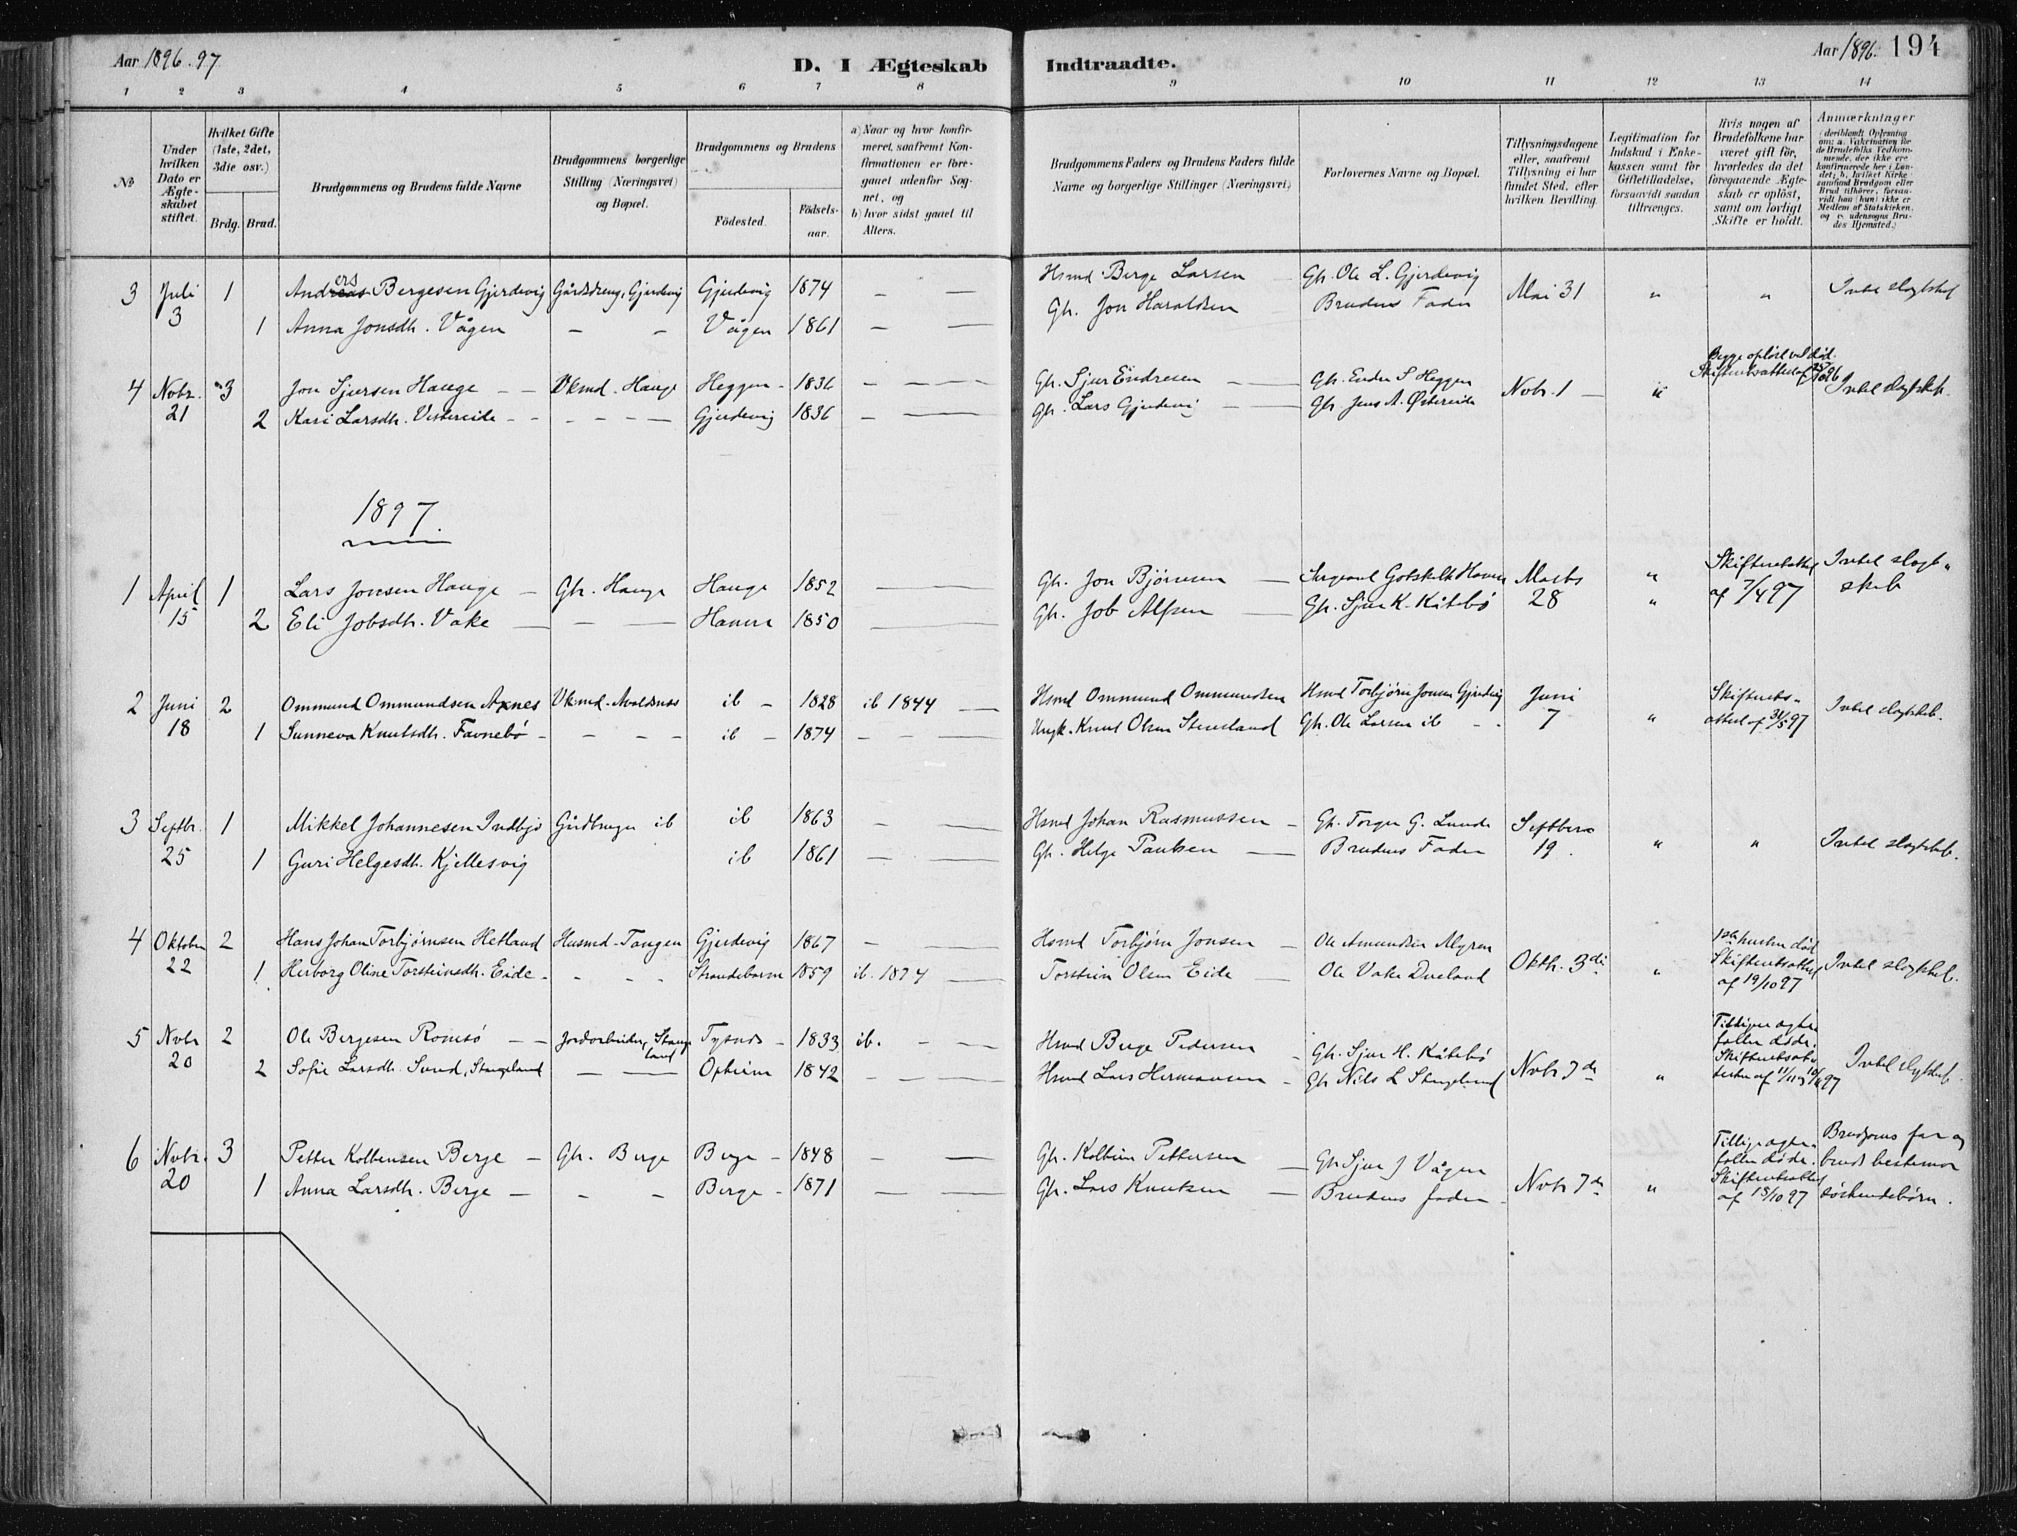 Aar 1896.97
D. I Ægteskab Indtraadte.
Aar 1896. 194
1 2 3 4 5 6 7 8 9 10 11 12 13 14
№
Under hvilken Dato er Ægteskabet stiftet.
Hvilket Gifte (1ste, 2det, 3die osv.)
Brdg. Brud.
Brudgommens og Brudens fulde Navne
Brudgommens borgerlige Stilling (Næringsvei) og Bopæl.
Brudgommens og Brudens
Födested.
Födselsaar.
a) Naar og hvor konfirmeret, saafremt Konfirmationen er foregaaet udenfor Sognet, og
b) hvor sidst gaaet til Alters.
Brudgommens Faders og Brudens Faders fulde Navne og borgerlige Stillinger (Næringsvei)
Forlovernes Navne og Bopæl.
Tillysningsdagene eller, saafremt Tillysning ei har fundet Sted, efter hvilken Bevilling.
Legitimation for Indskud i Enkekassen samt for Giftetilladelse, forsaavidt saadan tiltrænges.
Hvis nogen af Brudefolkene har været gift för, hvorledes da det foregaaende Ægteskab er oplöst, samt om lovligt Skifte er holdt.
Anmærkninger
3 Juli 3 1 Anders Bergesen Gjerdevig Gårdsdreng, Gjerdevig Gjerdevig 1874 — — Hsmd. Berge Larsen Gb. Ole L. Gjerdevig Mai 31 " " Intet slagtskab
1 Anna Jonsdtr. Vågen — — Vågen 1861 — — Gb. Jon Haraldsen Brudens Fader
4 Novbr. 21 3 Jon Sjursen Hauge — — Ukmd. Hauge Heggen 1836 — — Gb. Sjur Endresen — Gb. Endre S Heggen Novbr. 1 — " Begge opløst ved død. Intet slagtskab.
2 Kari Larsdtr. Vestereide — — Gjerdevig 1836 — — Gb. Lars Gjerdevig — Gb. Jens A. Østereide
1897.
1 April 15 1 Lars Jonsen Hauge — Gb. Hauge Hauge 1852 — Gb. Jon Bjørnsen — Sergeant Gotskalk Marts 28 " Skifteretsattest af 7/4 97 Intet slagtskab
2 Eli Jobsdtr. Vake — — — 1850 — Gb. Job Alfsen — Gb. Sjur K. Kåtebø "
2 Juni 18 2 Ommund Ommundsen Axnes Ukmd. Avaldsnes ib — 1828 ib 1844 — Hsmd Ommund Ommundsen Hsmd Torbjørn Jonsen Gjerdevig Juni 7 " Skifteretsattest af 31/5 97 Intet slagtskab.
1 Sunneva Knutsdtr. Favnebø — — — ib — 1874 — — Knut Olsen Gb. Ole Larsen ib
3 Septbr. 25 1 Mikkel Johannesen Indbjo Gårdbruger ib ib 1863 — — Hsmd Johan Rasmussen — Gb. Torger G. Lunde Septber 19. " " Intet slagtskab.
1 Guri Helgesdtr. Kjellesvig ib 1861 — — Gb. Helge Paulsen — Brudens Fader
4 Oktober 22 2 Hans Johan Torbjørnsen Hetland Husmd. Tangen Gjerdevig 1867 — — Hsmd Torbjørn Jonsen — Ole Amundsen Myren Oktbr. 3di " 1ste hustru død Skifteretsattest af 19/10 97 Intet slagtskab.
1 Herborg Oline Torsteinsdtr. Eide — — — Strandebarm 1859 ib. 1874 — Torstein Olsen Eide — Ole Vake
5 Novbr 20 2 Ole Bergesen Romsø — — Jordarbeider, Stangeland Tysnes — 1833 ib. — — Hsmd Berge Pedersen — Gb. Sjur H. Kåtebø Novbr 7de " Tidligere ægtefeller døde. Intet slagtskab.
2 Sofie Larsdtr. Sund, Stangeland — — Opheim 1842 — — — Hsmd Lars Hermansen — Gb Nils L Stangeland
6 Novbr. 20 3 Petter Kolbensen Berge — Gb. Berge Berge — 1848 — — Gb. Kolbein Pettersen — Gb Sjur J Vågen Novbr 7de " Tidligere ægtefeller døde. Skifteretsattest af 13/10 97 Brudgoms far og bruds bestemor søskendebørn.
1 Anna Larsdtr. Berge — — — Berge — 1871 — — Gb. Lars Knutsen — Brudens fader